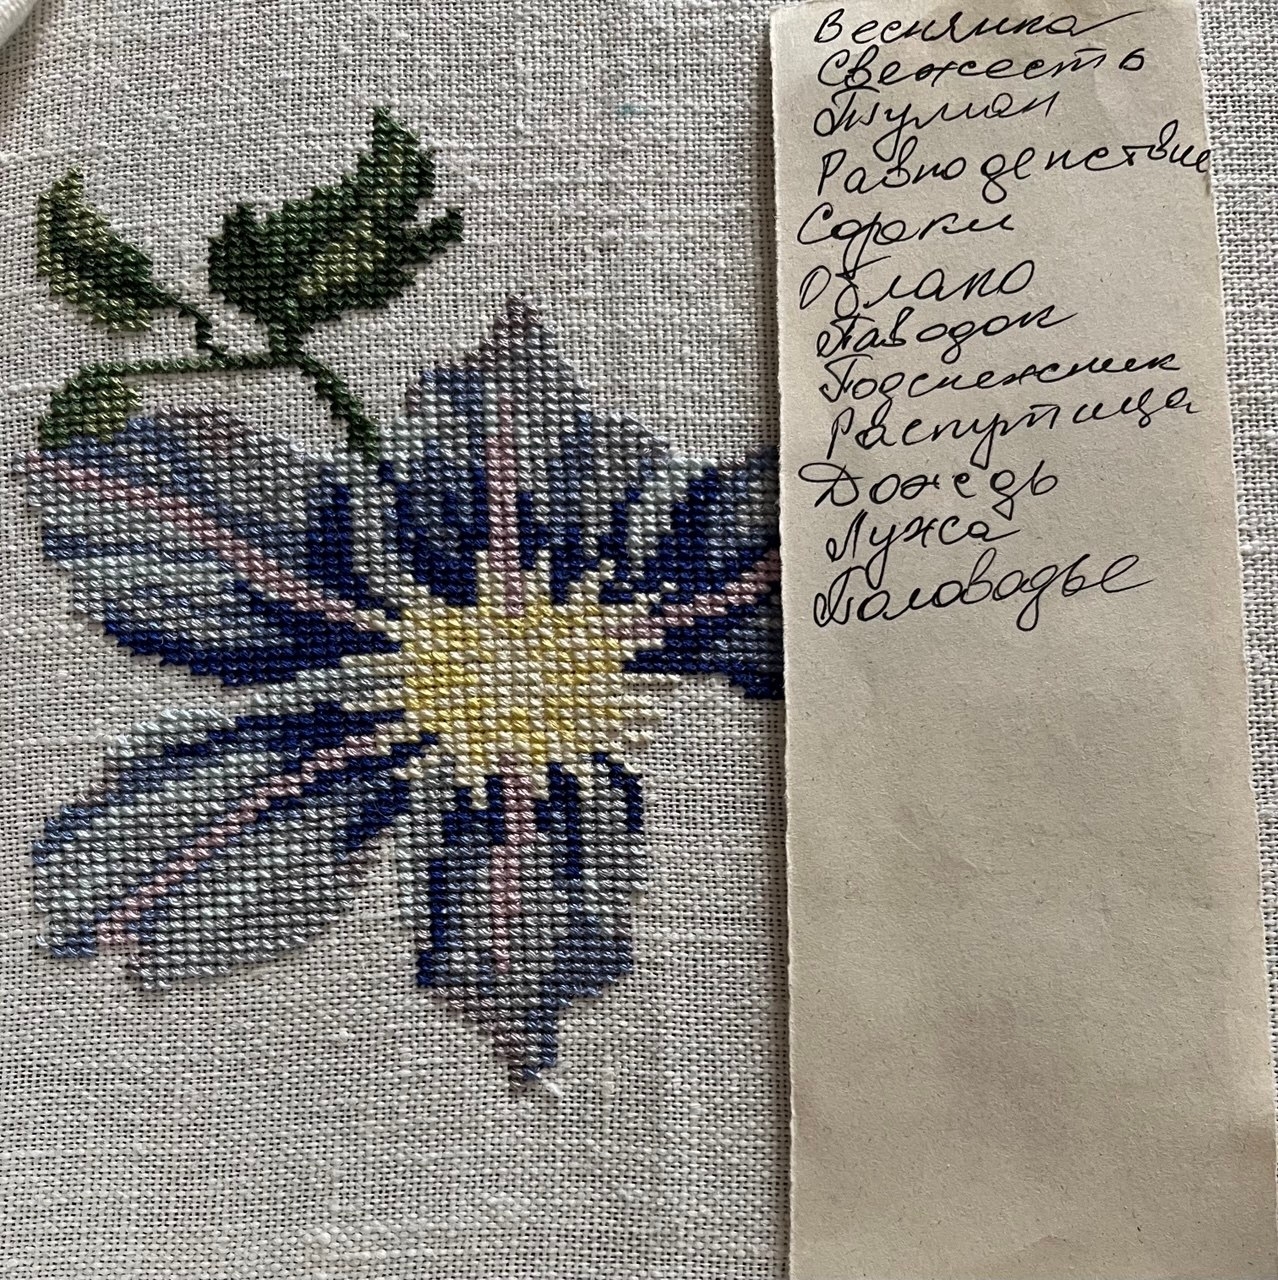 Веснянка
Свежесть
Туман
Равноденствие
Сороки
Облако
Паводок
Подснежник
Распутица
Дождь
Лужа
Половодье